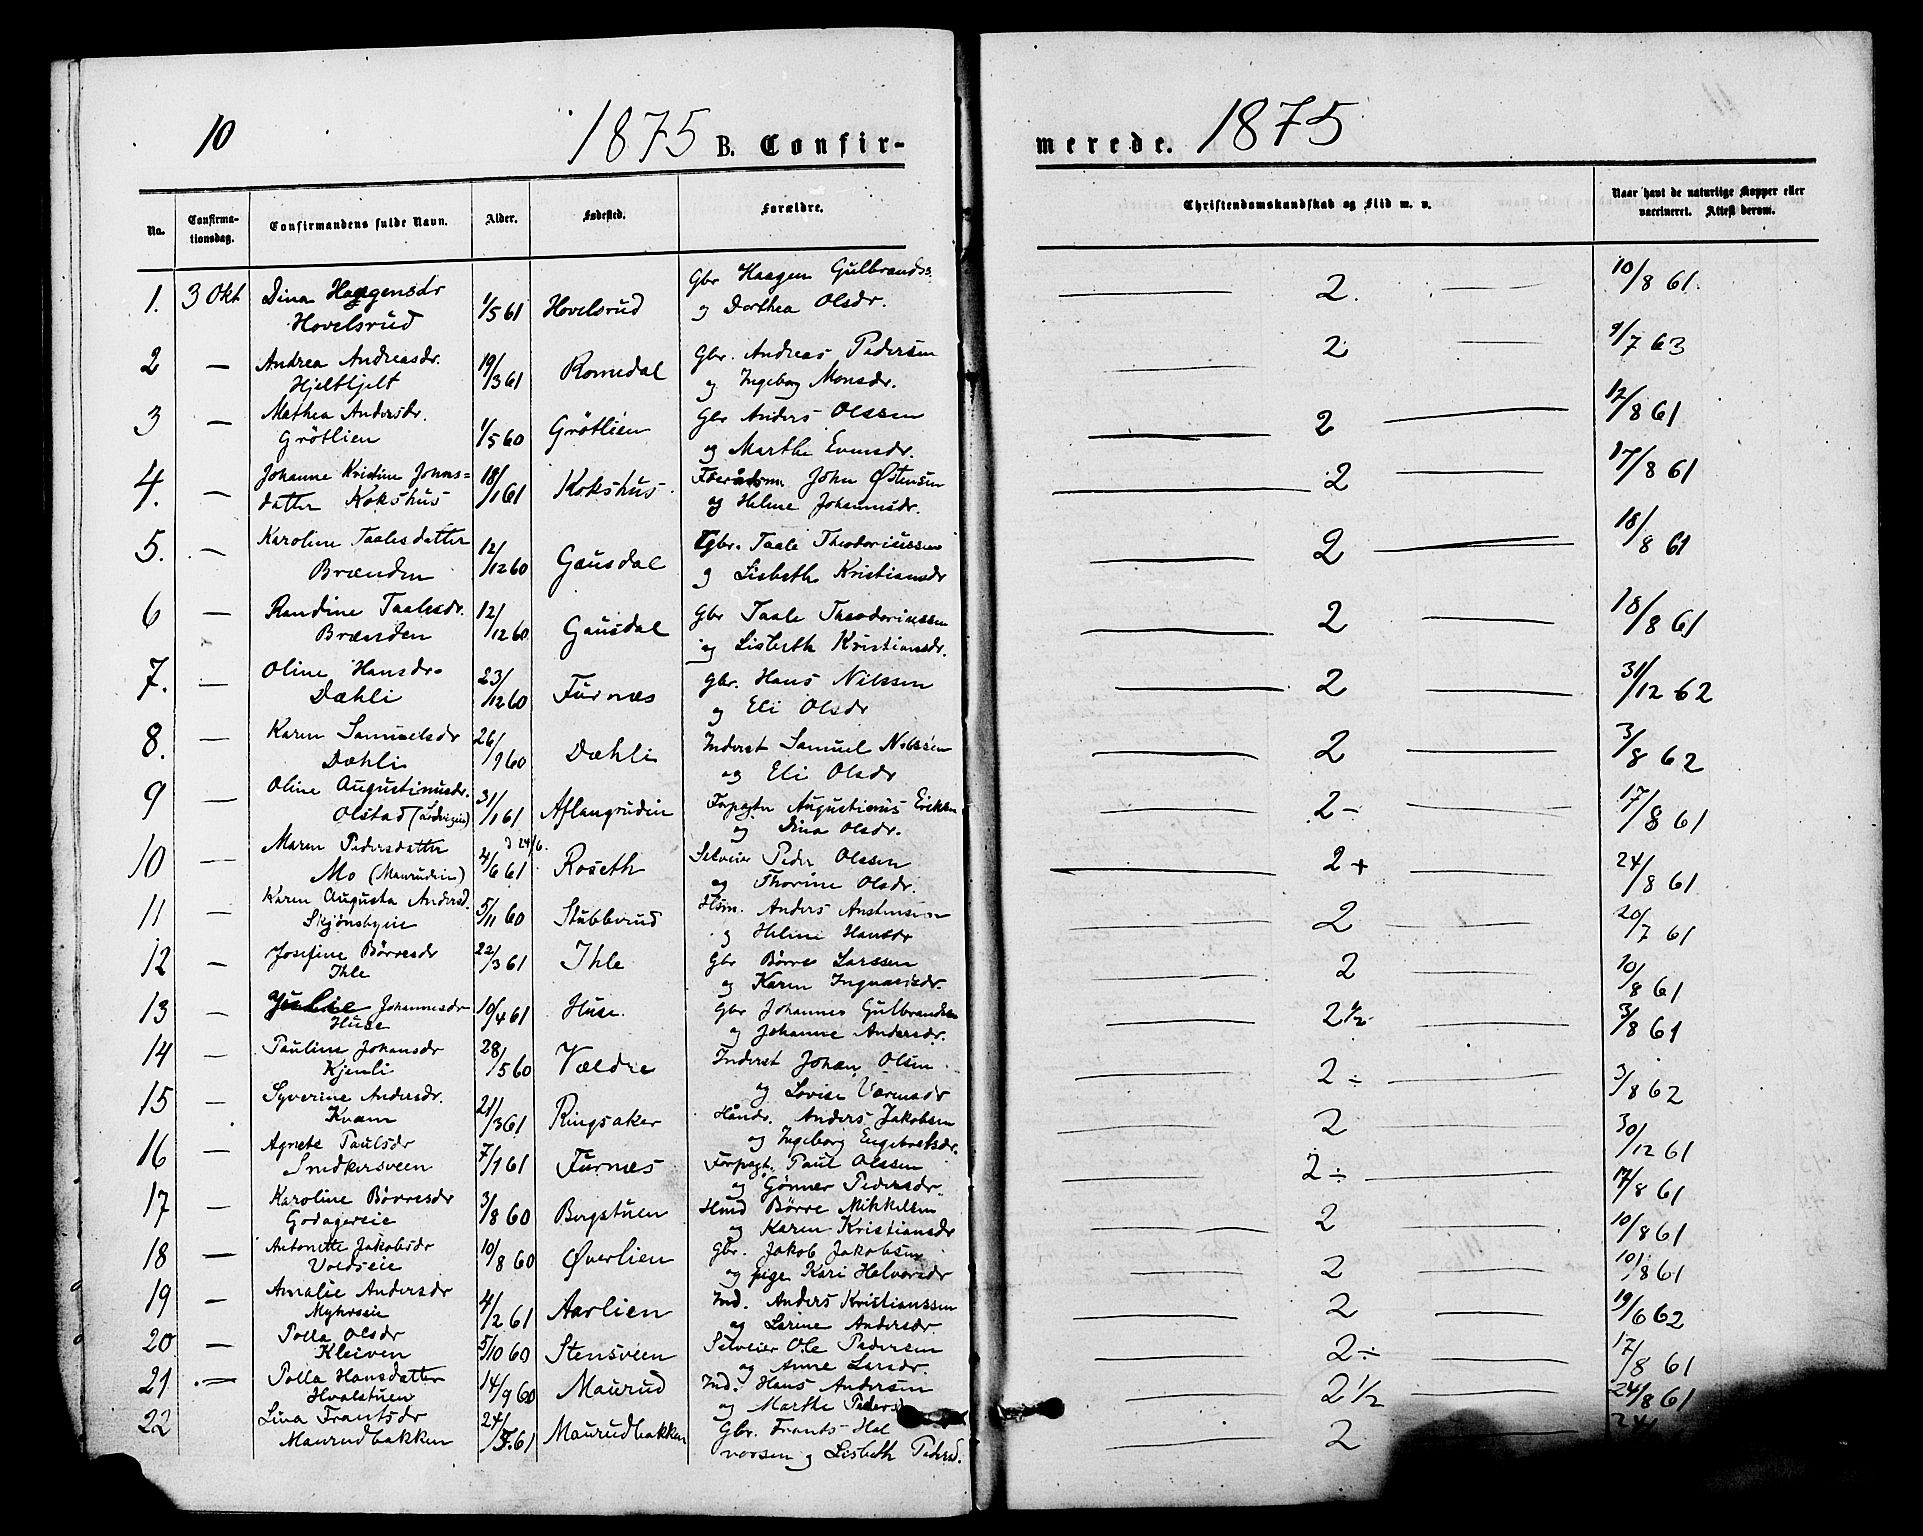 10
1875 B. Confir-
merede. 1875
No. Confirma-tionsdag. Confirmandens fulde Navn. Alder. Fødested. Forældre. Christendomskundskab og Flid m. v. Naar havt de naturlige Kopper eller vaccineret. Attest derom.
1. 3 Okt Dina Haagensdr 1/5 61 Hovelsrud Gbr Haagen Gulbrands. 2. 10/8 61.
Hovelsrud og Dorthea Olsdr.
2 — Andrea Andreasdr. 19/3 61 Romedal Gbr. Andreas Pedersen 2 9/7 63
Hjelthjelt og Ingeborg Monsdr.
3 — Mathea Andersdr. 1/5 60 Grötlien Gbr Anders Olssen 2 12/8 61
Grötlien og Marthe Evensdr.
4. — Johanne Kristine Johns= 18/1 61 Kokshus. Føderådsm. John Østensen 2 17/8 61
datter Kokshus og Helene Johannesdr.
5. — Karoline Taalesdatter 12/12 60 Gausdal Gbr. Taale Theodoriussen 2 18/8 61
Brænden og Lisbeth Kristiansdr
6 — Randine Taalesdr. 12/12 60 Gausdal Gbr Taale Theodoriussen 2 18/8 61
Brænden og Lisbeth Kristiansdr.
7. — Oline Hansdr. 23/12 60 Furnæs Gbr. Hans Nilssen 2 31/12 62
Dæhli og Eli Olsdr
8. — Karen Samuelsdr 26/9 60 Dæhli Inderst Samuel Nilssen 2 3/8 62
Dæhli og Eli Olsdr
9 — Oline Augustinusdr. 31/1 61 Aflangrudin Forpagtr Augustinus Eriksen 2- 17/8 61
Olstad og Dina Olsdr.
10 — Maren Pedersdatter 4/6 61 d 24/6. Roseth Selveier Peder Olssen 2+ 24/8 61
Mo (Maurudein) og Thorine Olsdr.
11 — Karen Augusta Andersd. 5/11 60 Stubberud Hsm. Anders Anstensen 2 20/7 61
Skjönsbyeie og Helene Hansdr
12 — Josefine Börresdr 22/3 61 Ihle Gbr Börre Larssen 2 10/8 61
Ihle og Karen Ingvaldsdr.
13 — Julie Johannesdr 10/4 61 Huse. Gbr Johannes Gulbrandsen 2 1/2 3/8 61
Huse og Johanne Andersdr.
14 — Pauline Johansdr 28/5 60 Vældre Inderst Johan Olsen 2 ÷ 3/8 62
Kjemli og Lovise
15 — Syverine Andersdr. 21/3 61 Ringsaker Håndv. Anders Jakobsen 2 30/12 61
Kvam og Ingeborg Engebretsdr.
16 — Agnete Paulsdr 7/1 61 Furnæs Forpagt. Paul Olssen 2 ÷ 17/8 61
Smidkersveen og Gönner Pedersdr.
17 — Karoline Börresdr 3/8 60 Bergstuen Hsmd Börre Mikkelsen 2 10/8 61
Godagereie og Karen Kristiansdr
18 — Antonette Jakobsdr 10/8 60 Øverlien Gbr. Jakob Jakobsen 2 10/8 61
Voldseie og pige Kari Halvorsdr
19 — Amalie Andersdr 4/2 61 Aarlien Ind. Anders Kristianssen 2 19/6 62
Myhrseie og Larine Andersdr.
20 — Polla Olsdr 5/10 60 Stensveen Selveier Ole Pedersen 2 ÷ 17/8 61
Kleiven og Anne Larsdr.
21 — Polla Hansdatter 14/9 60 Maurud Ind. Hans Andersen 2 1/2 24/8 61
Hvalstuen og Marthe Pedersd
22 Lina Frantsdr 24/5 61 Maurudbakken Gbr. Frants Hal 2 24/
Maurudbakken vorsen og Lisbeth Pedersd.